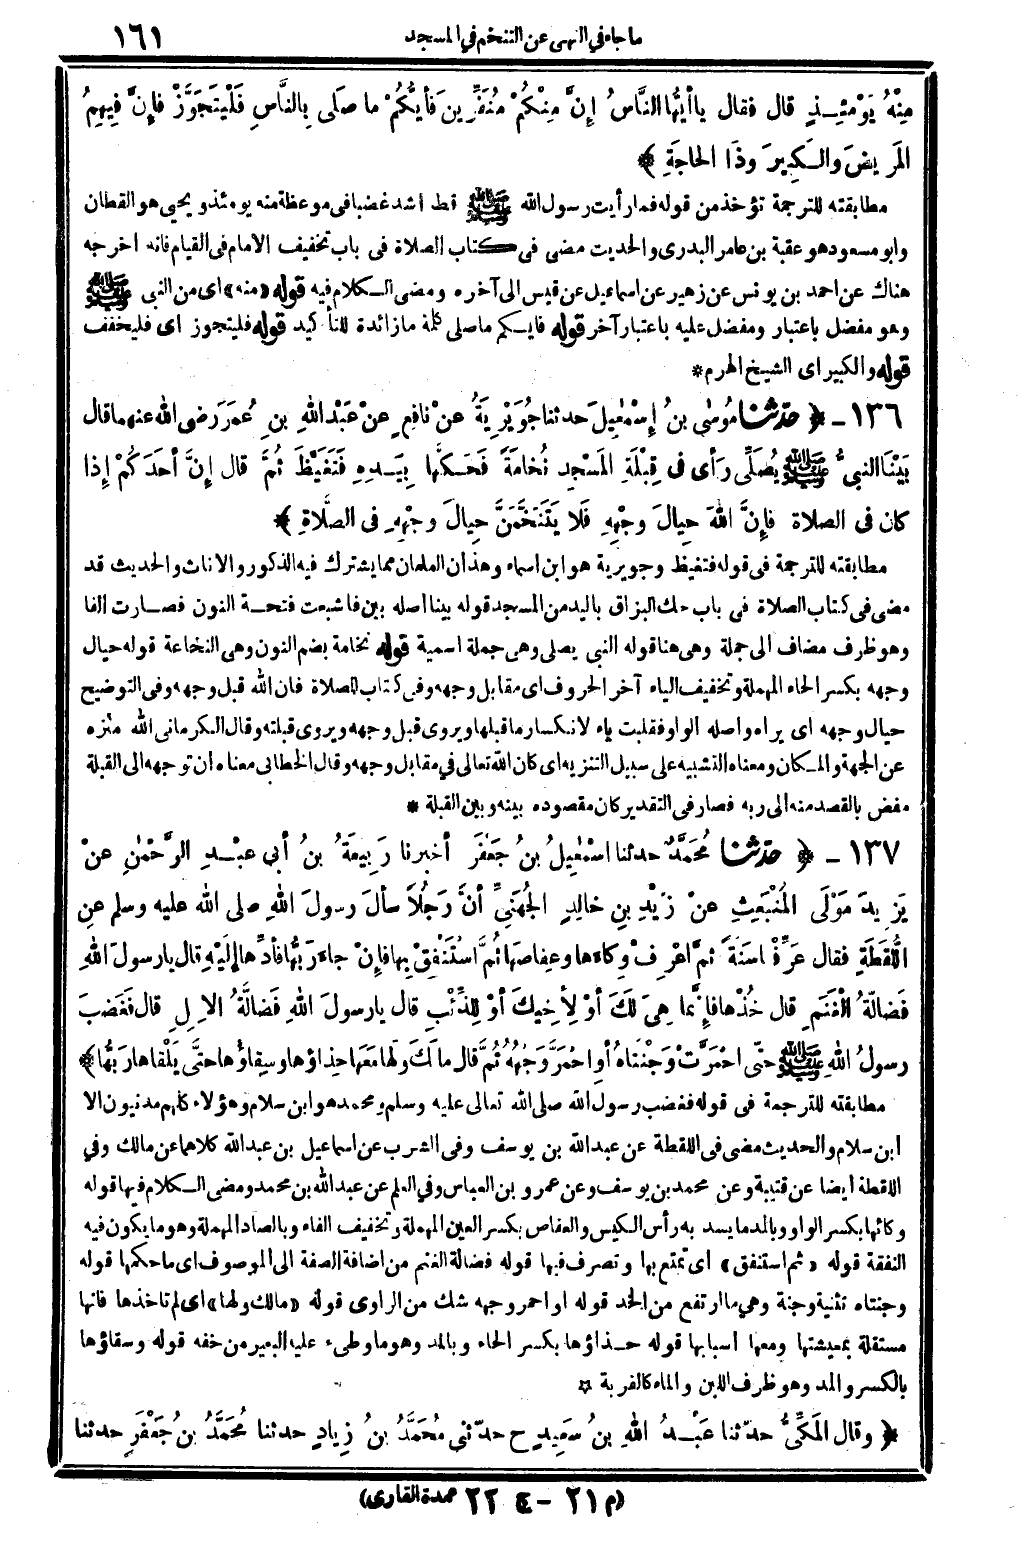 ما جاء في النهى عن التنخم في المسجد ١٦١
مِنْهُ يَوْمَئِـذٍ قال فقال يا أيُّها النَّاسُ إنَّ مِنْكُمْ مُنَفِّرِينَ فَأيُّكُمْ ما صَلَى بِالنَّاسِ فَلْيَتَجَوَّزْ فإنَّ فِيهِمُ
المَرِيضَ والـكَبِيرَ وذَا الحاجَةِ ﴾
مطابقته للترجمة تؤخذ من قوله فما رأيت رسول الله ﷺ قط اشد غضبا في موعظة منه يومئذ ويحيى هو القطان
وابو مسعود هو عقبة بن عامر البدرى والحديث مضى في كتاب الصلاة في باب تخفيف الامام في القيام فانه اخرجه
هناك عن احمد بن يونس عن زهير عن اسماعيل عن قيس الى آخره ومضى الـكلام فيه قوله «منه» اى من النبى ﷺ
وهو مفضل باعتبار ومفضل عليه باعتبار آخر قوله فايـكم ما صلى كلمة ما زائدة للتأكيد قوله فليتجوز اى فليخفف
قوله والكبير اى الشيخ الهرم*
١٣٦ - ﴿ حدثنا مُوسَى بنُ إسْمٰعِيلَ حدثنا جُوَيْرِيَةُ عنْ نافِعٍ عنْ عَبْدِ اللهِ بنِ عُمَرَ رضى الله عنهما قال
بَيْنَا النبيُّ ﷺ يُصَلِّى رَأى في قِبْلَةِ المَسْجِدِ نُخَامَةً فَحَـكَّها بِيَـدِهِ فَتَغَيَّظَ ثُمَّ قال إنَّ أحَدَكُمْ إذا
كان في الصلاة فإنَّ اللهَ حِيالَ وجْهِهِ فَلا يَتَنَخَّمَنَّ حِيالَ وجْهِهِ في الصَّلاةِ ﴾
مطابقته للترجمة في قوله فتغيظ وجويرية هو ابن اسماء وهذان العلمان مما يشترك فيه الذكور والاناث والحديث قد
مضى في كتاب الصلاة في باب حك البزاق باليد من المسجد قوله بينا اصله بين فاشبعت فتحـة النون فصـارت الفا
وهو ظرف مضاف الى جملة وهى هنا قوله النبي يصلى وهى جملة اسمية قوله نخامة بضم النون وهى النخاعة قوله حيال
وجهه بكسر الحاء المهملة وتخفيف الياء آخر الحروف اى مقابل وجهه وفى كتاب الصلاة فان الله قبل وجهه وفى التوضيح
حيال وجهه اى يراه واصله الواو فقلبت ياء لانكسار ما قبلها ويروى قبل وجهه ويروى قبلته وقال الكرمانى الله منزه
عن الجهة والمـكان ومعناه التشبيه على سبيل التنزيه اى كان الله تعالى في مقابل وجهه وقال الخطابى معناه ان توجهه الى القبلة
مفض بالقصد منه الى ربه فصار في التقدير كان مقصوده بينه وبين القبلة *
١٣٧ - ﴿ حدثنا مُحَمَّدٌ حدثنا اسْمٰعِيلُ بنُ جَعْفَرَ أخبرنا رَبِيعَةُ بنُ أبى عبْـدِ الرَّحْمٰنِ عنْ
يَزِيدَ مَوْلَى المُنْبَعِثِ عنْ زَيْدِ بنِ خالِدٍ الجُهَنِيِّ أنَّ رَجُلاً سألَ رسولَ اللهِ صلى الله عليه وسلم عنِ
اللُّقَطَةِ فقال عَرِّفْها سَنَةً ثُمَّ اعْرِفْ وِكاءَها وعِفاصَها ثُمَّ اسْتَنْفِقْ بِها فإنْ جاءَ رَبُّها فأدِّها إلَيْهِ قال يا رسولَ اللهِ
فَضالَّةُ الغَنَمِ قال خُذْها فإنَّما هِىَ لَكَ أوْ لِأخِيكَ أوْ لِلذِّئْبِ قال يارسولَ اللهِ فَضالَّةُ الابِلِ قال فَغَضِبَ
رسولُ اللهِ ﷺ حتّى احْمَرَّتْ وَجْنَتاهُ أوِ احْمَرَّ وَجْهُهُ ثُمَّ قال ما لَكَ ولَها مَعَها حِذاؤُها وسِقاؤُها حتَّى يَلْقاها رَبُّها﴾
مطابقته للترجمة فى قوله فغضب رسول الله صلى الله تعالى عليه وسلم ومحمد هو ابن سلام وهؤلاء كلهم مدنيون الا
ابن سلام والحديث مضى فى اللقطة عن عبدالله بن يوسف وفى الشرب عن اسماعيل بن عبدالله كلاهما عن مالك وفي
اللقطة أيضا عن قتيبة وعن محمد بن يوسف وعن عمرو بن العباس وفي العلم عن عبدالله بن محمد ومضى الـكلام فيها قوله
وكاءها بكسر الواو وبالمد ما يسد به رأس الكيس والعفاص بكسر العين المهملة وتخفيف الفاء وبالصاد المهملة وهو ما يكون فيه
النفقة قوله «ثم استنفق» اى تمتع بها وتصرف فيها قوله فضالة الغنم من اضافة الصفة الى الموصوف اى ما حكمها قوله
وجنتاه تثنية وجنة وهى ما ارتفع من الخد قوله او احمر وجهه شك من الراوى قوله «مالك ولها» اى لم تاخذها فانها
مستقلة بمعيشتها ومعها اسبابها قوله حـذاؤها بكسر الحاء وبالمد وهو ما وطىء عليه البعير من خفه قوله وسقاؤها
بالكسر والمد وهو ظرف اللبن والماء كالقربة ☆
﴿ وقال المَكِّيُّ حدَّثنا عَبْـدُ اللهِ بنُ سَعِيدٍ ح حدّثني مُحَمَّدُ بنُ زِيادٍ حدثنا مُحَمَّدُ بنُ جَعْفَرٍ حدثنا
(م ٢١ - ج ٢٢ عمدة القارى)